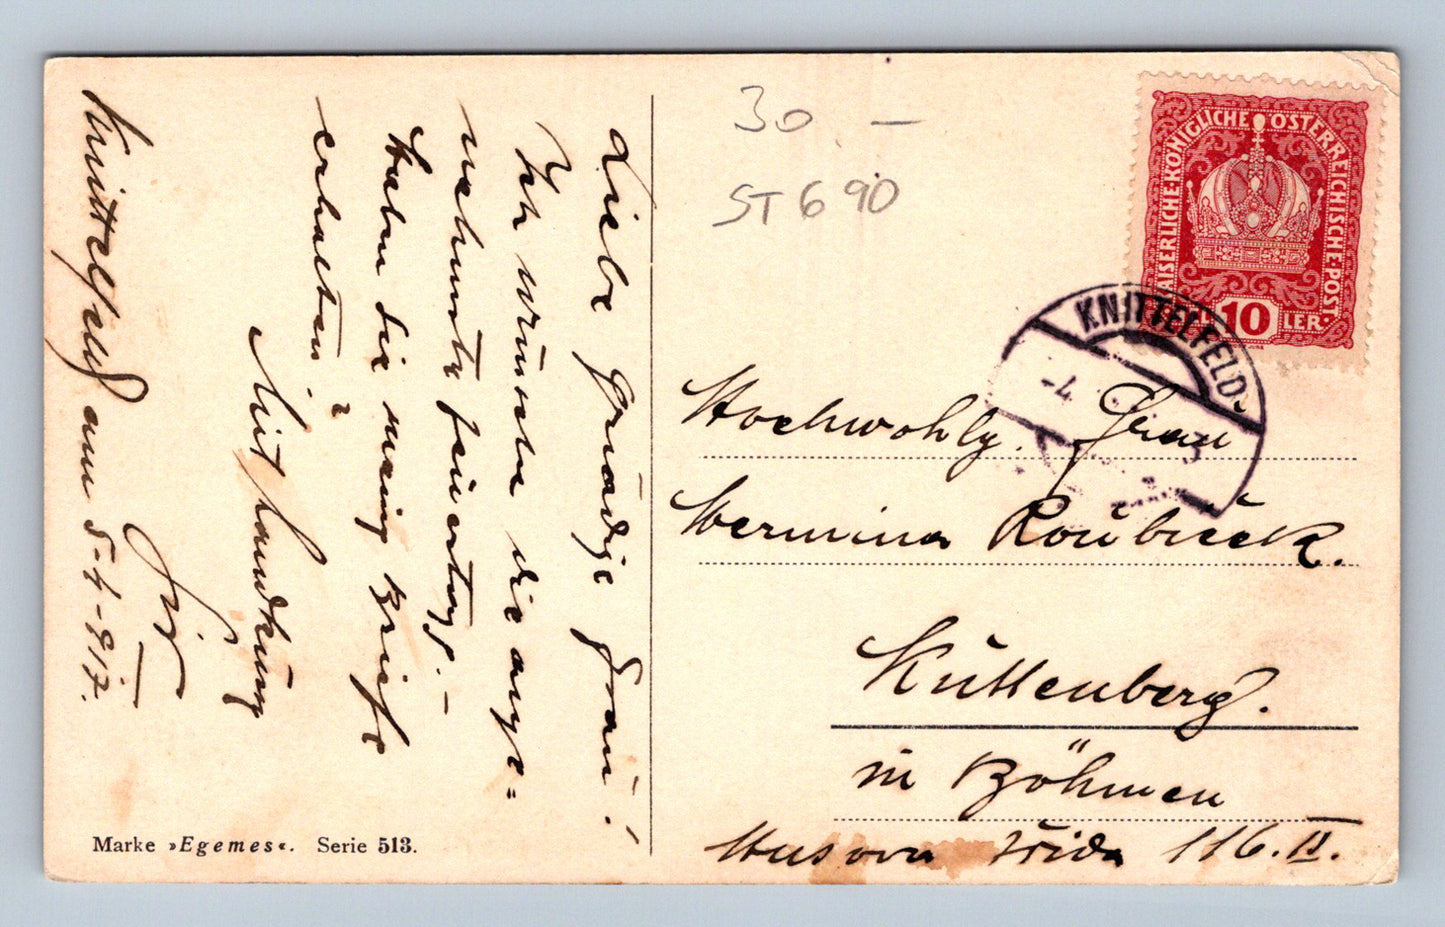 Liebe gnädige Frau!
Ich wünsche die ange=
nehmste Feiertage.-
Haben Sie meine Briefe
erhalten?
Mit Handkuss
Knittelfeld am 5-4-917.
Marke »Egemes«. Serie 513.
30 —
ST 690
KAISERLICHE KÖNIGLICHE ÖSTERREICHISCHE POST
HELLER
10
KNITTELFELD
-4.
Hochwohlg. Frau
Hermina Roubicek.
Kuttenberg.
in Böhmen
Husova třida 116. II.